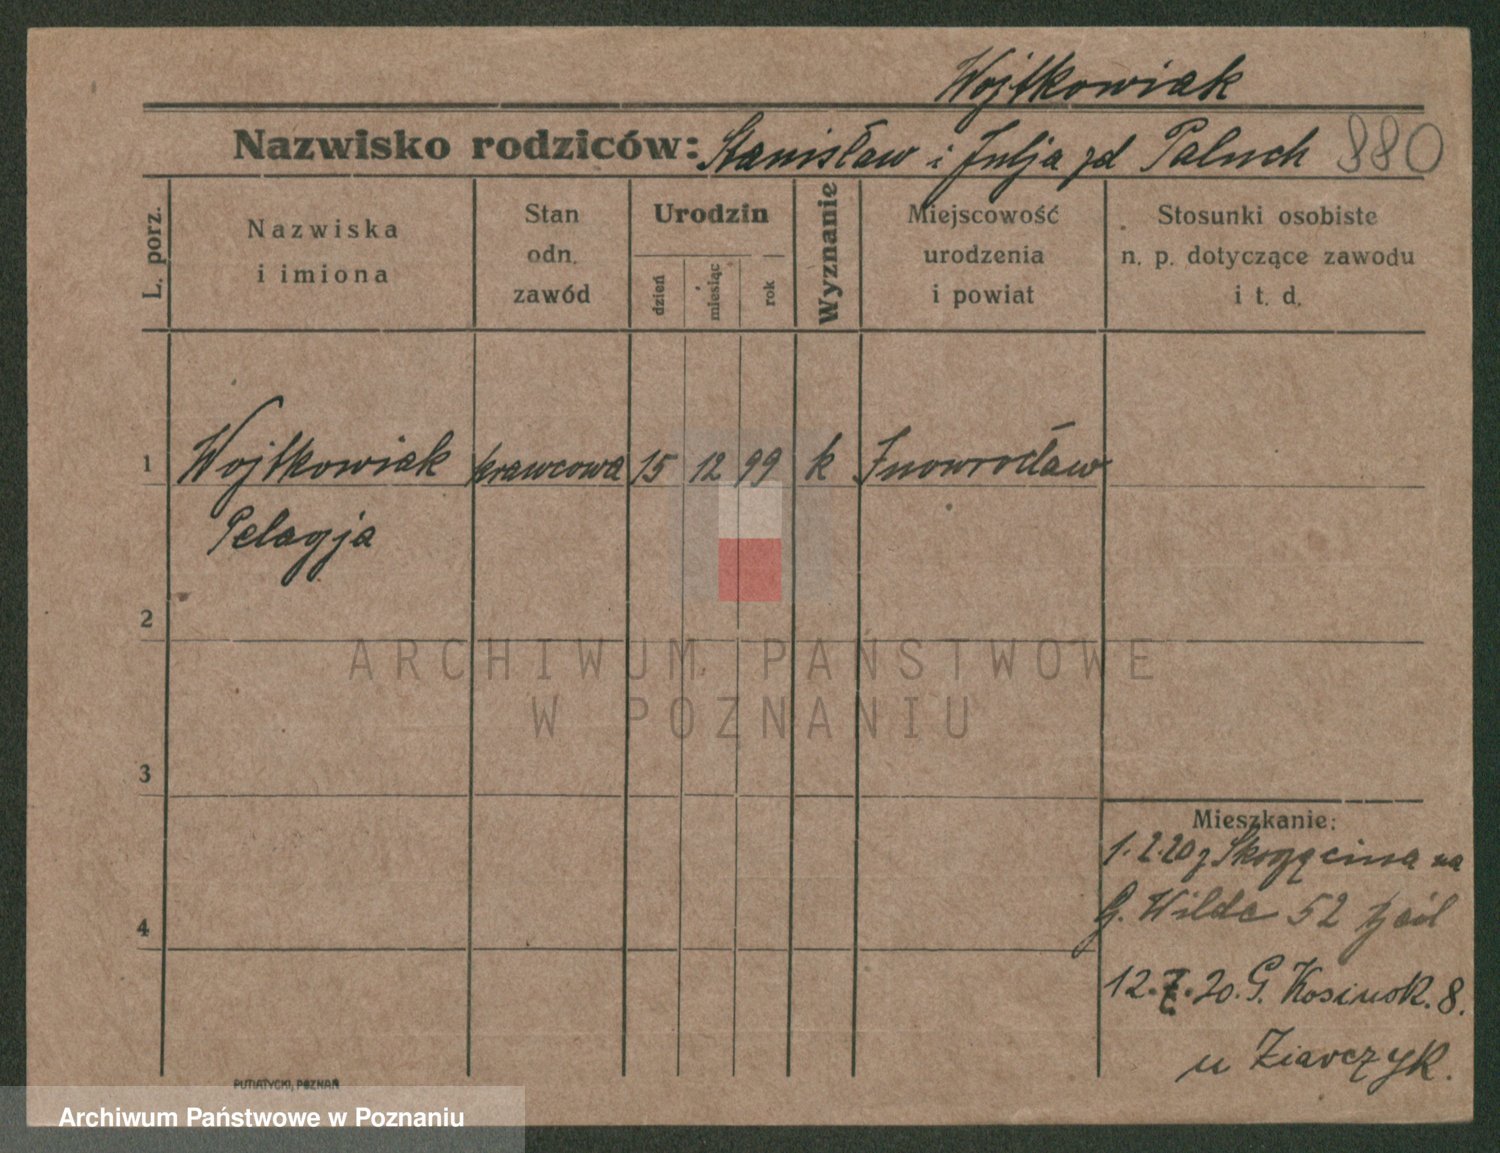 Wojtkowiak
Nazwisko rodziców: Stanisław i Julja zd Paluch 880
L. porz.
Nazwiska
i imiona
Stan
odn.
zawód
Urodzin
dzień
miesiąc
rok
Wyznanie
Miejscowość
urodzenia
i powiat
Stosunki osobiste
n. p. dotyczące zawodu
i t. d.
1 Wojtkowiak krawcowa 15 12 99 k Inowrocław
Pelagja
2
ARCHIWUM PAŃSTWOWE
W POZNANIU
3
Mieszkanie:
1.2.20 z na
4
G. Wilde 52
12. 20. G. 8.
u Ziarczyk.
PUTIATYCKI, POZNAŃ
Archiwum Państwowe w Poznaniu